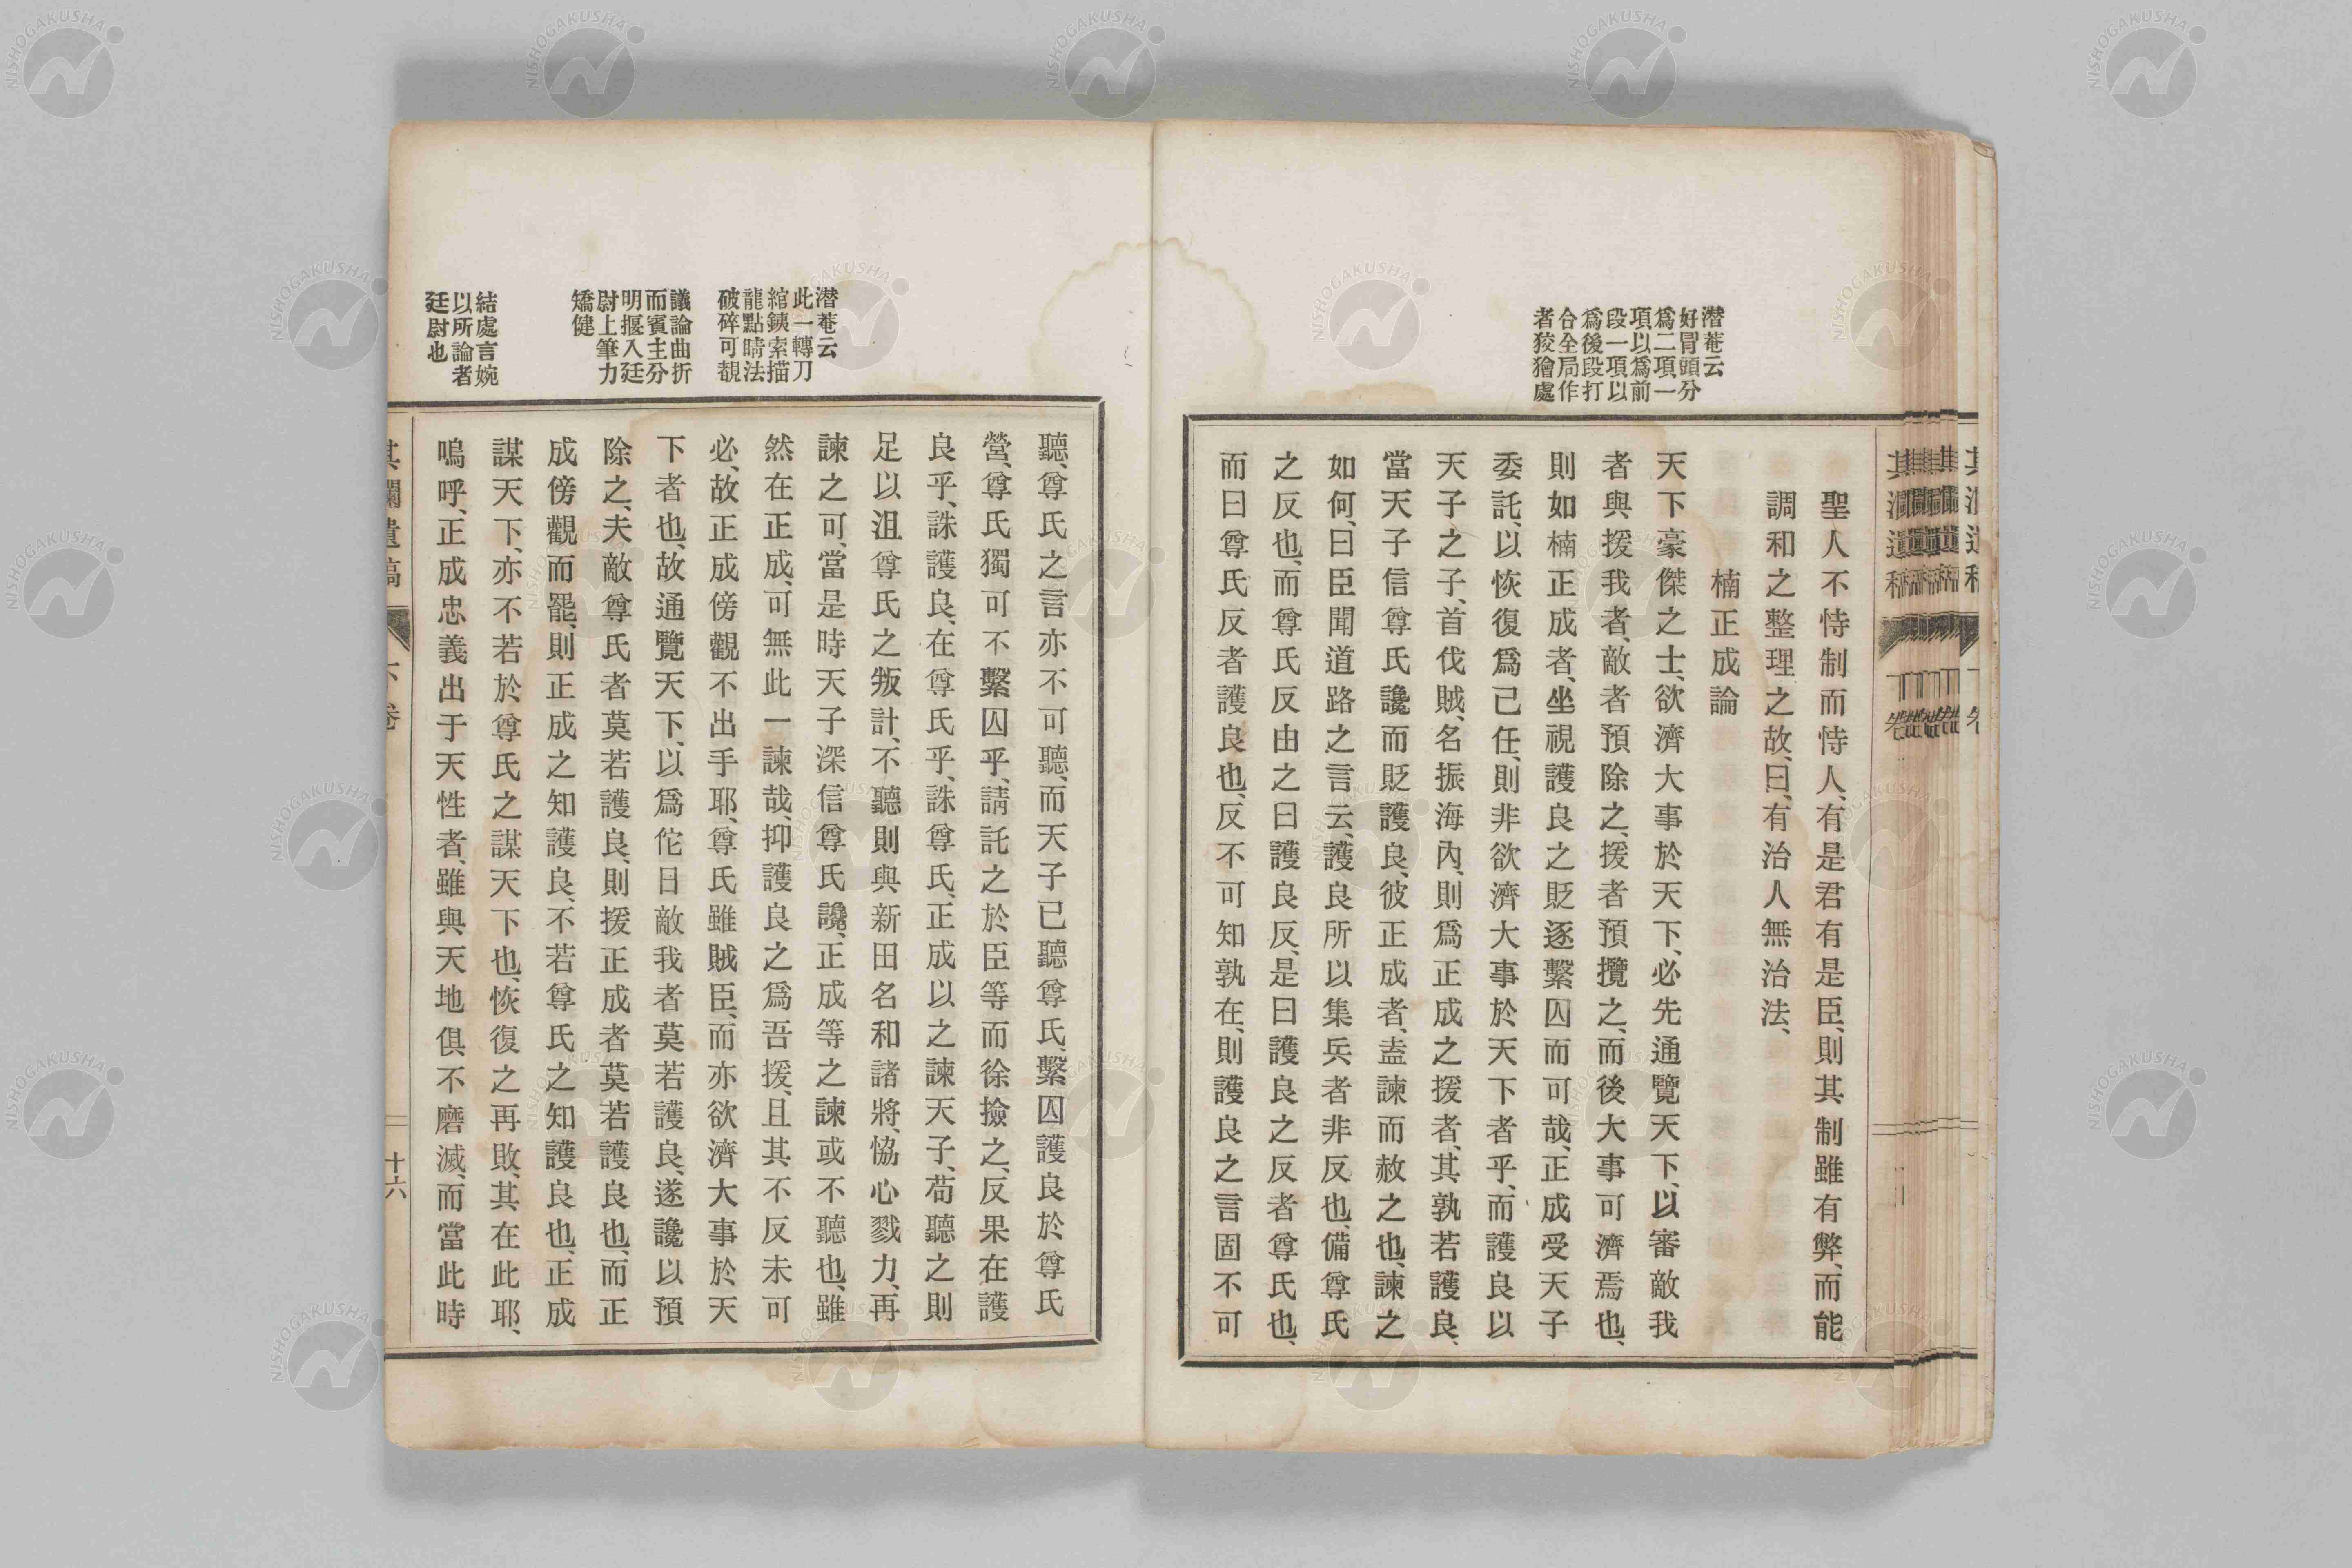 潜菴云
好冒頭分
爲二項一
項以爲前
段一項以
爲後段打
合全局作
者狡獪處
聖人不恃制而恃人、有是君有是臣、則其制雖有弊、而能
調和之整理之、故曰、有治人無治法、
楠正成論
天下豪傑之士、欲濟大事於天下、必先通覽天下、以審敵我
者與援我者、敵者預除之、援者預攬之、而後大事可濟焉也、
則如楠正成者、坐視護良之貶逐繫囚而可哉、正成受天子
委託、以恢復爲已任、則非欲濟大事於天下者乎、而護良以
天子之子、首伐賊、名振海內、則爲正成之援者、其孰若護良、
當天子信尊氏讒而貶護良、彼正成者、盍諫而赦之也、諫之
如何、曰臣聞道路之言云、護良所以集兵者非反也、備尊氏
之反也、而尊氏反由之曰護良反、是曰護良之反者尊氏也、
而曰尊氏反者護良也、反不可知孰在、則護良之言固不可
潜菴云
此一轉刀
綰銕索描
龍點睛法
破碎可覩
議論曲折
而賓主分
明揠入廷
尉上筆力
矯健
結處言婉
以所論者
廷尉也
聽、尊氏之言亦不可聽、而天子已聽尊氏、繫囚護良於尊氏
營、尊氏獨可不繫囚乎、請託之於臣等而徐撿之、反果在護
良乎、誅護良、在尊氏乎、誅尊氏、正成以之諫天子、苟聽之則
足以沮尊氏之叛計、不聽則與新田名和諸將、恊心戮力、再
諫之可、當是時天子深信尊氏讒、正成等之諫或不聽也、雖
然在正成、可無此一諫哉、抑護良之爲吾援、且其不反未可
必、故正成傍觀不出手耶、尊氏雖賊臣、而亦欲濟大事於天
下者也、故通覽天下、以爲佗日敵我者莫若護良、遂讒以預
除之、夫敵尊氏者莫若護良、則援正成者莫若護良也、而正
成傍觀而罷、則正成之知護良、不若尊氏之知護良也、正成
謀天下、亦不若於尊氏之謀天下也、恢復之再敗、其在此耶、
嗚呼、正成忠義出于天性者、雖與天地俱不磨滅、而當此時
其瀾遺稿
下卷
十六